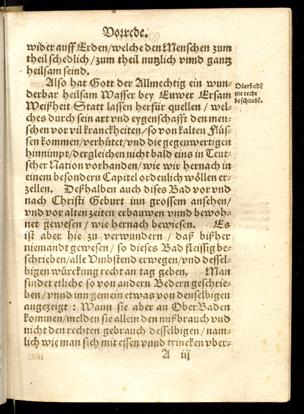 Vorrede.
wider auff Erden/welche den Menschen zum
theil schedlich/zum theil nutzlich vnnd gantz
heilsam seind.
Also hat Gott der Allmechtig ein wun-
derbar heilsam Wasser bey Euwer Ersam
Weißheit Statt lassen herfür quellen / wel-
ches durch sein art vnd eygenschafft den men-
schen vor vil kranckheiten/so von kalten Flüs-
sen kommen/verhütet/vnd die gegenwertigen
hinnimpt/dergleichen nicht bald eins in Teut-
scher Nation vorhanden/wie wir hernach in
einem besondern Capitel ordenlich wöllen er-
zellen. Deßhalben auch dises Bad vor vnd
nach Christi Geburt inn grossem ansehen/
vnd vor alten zeiten erbauwen vnnd bewoh-
net gewesen / wie hernach bewisen. Es
ist aber hie zu verwundern / daß bißher
niemandt gewesen/so dieses Bad fleissig be-
schrieben/alle Vmbstend erwegen/vnd dessel-
bigen würckung recht an tag geben. Man
findet etliche so von andern Bedern geschrie-
ben/vnnd inn gemein etwas von denselbigen
angezeigt : Wann sie aber an Ober Baden
kommen/melden sie allein den mißbrauch vnd
nicht den rechten gebrauch desselbigen/nam-
lich wie man sich mit essen vnnd trincken vber-
A iij
Oberbadẽ
nie recht
beschriebẽ.